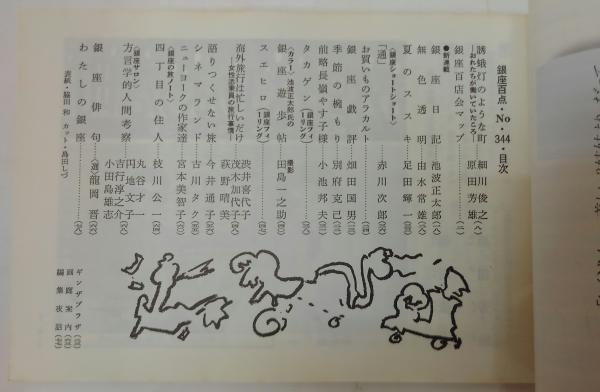 銀座百点・No・344・目次
誘蛾灯のような町 細川俊之
―おれたちが働いていたころ― 原田芳雄
銀座百店会マップ
●新連載
銀座日記 池波正太郎
無色透明 由水常雄
夏のススキ 足田輝一
〈銀座ショートショート〉
「通」 赤川次郎
お買いものアラカルト
銀座戯評 畑田国男
季節の椀もり 別府克己
前略長嶺やす子様 小池邦夫
タカゲン（銀座フィーリング）
〈カラー〉池波正太郎氏の
銀座遊歩帖 撮影 田島一之助
スエヒロ（銀座フィーリング）
海外旅行は忙しいだけ 渋井喜代子
―女性添乗員の旅行事情― 茂木加代子
荻野晴美
語りつくせない旅 今井通子
シネマランド 古川タク
ニューヨークの作家達 宮本美智子
〈銀座の旅ノート〉
四丁目の住人 枝川公一
〈銀座サロン〉 丸谷才一
方言学的人間考察 円地文子
吉行淳之介
小田島雄志
銀座俳句〈選〉龍岡晋
わたしの銀座
表紙・脇田和 カット・島田しづ
ギンザプラザ
画廊案内
編集夜話